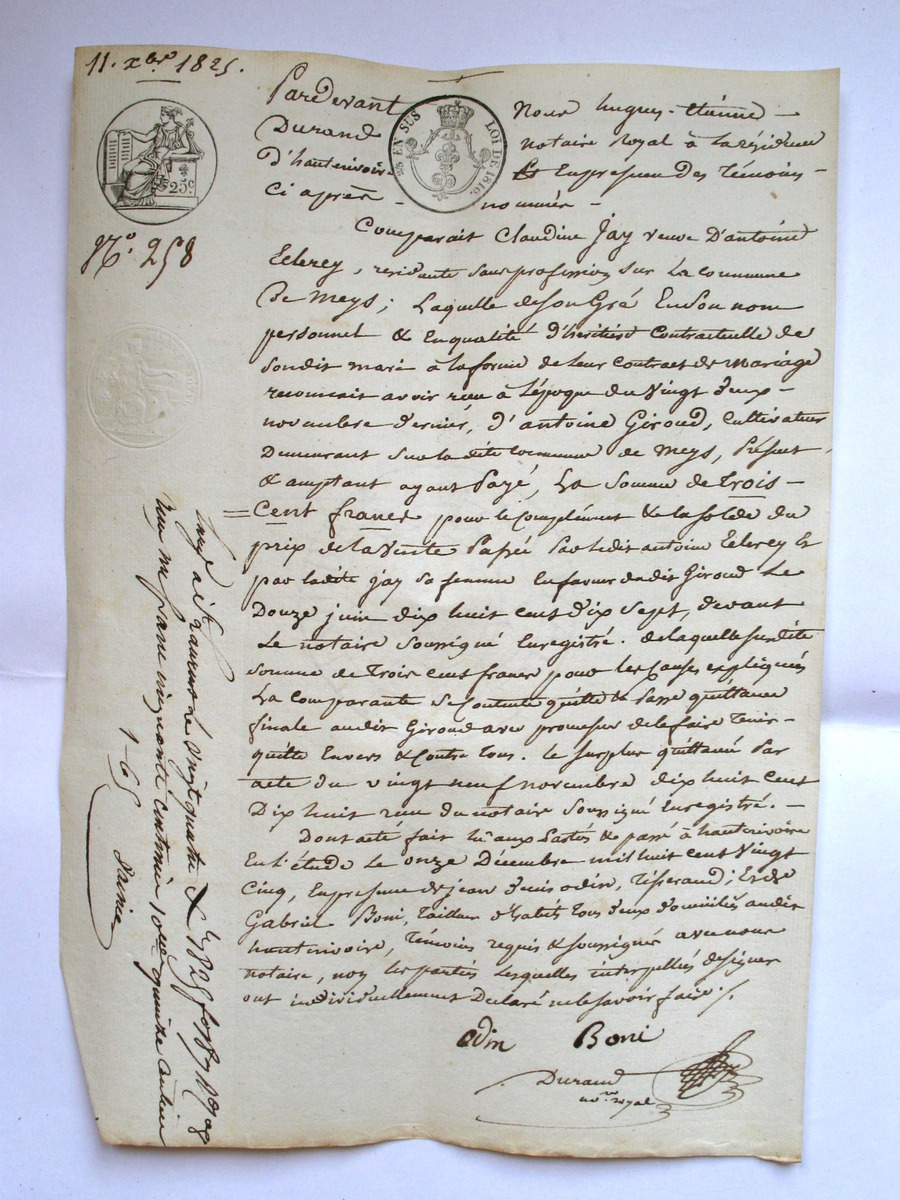 11. xbre 1825.
25 c
EN SUS
LOI DE 1816.
N° 258
Pardevant Nous hugues-étienne
Durand notaire Royal à la résidence
D'hauterivoire En présence des Témoins
Ci après nommés
Comparait Claudine Jay veuve D'antoine
residante sans profession sur La commune
De Meys; Laquelle de son Gré En son nom
personnel & En qualité d'héritière Contractuelle de
Son dit mari à la forme de leur contract de Mariage
reconnait avoir reçu à L'époque du Vingt deux
novembre dernier, d'antoine Giroud, Cultivateur
Demeurant Sur la dite Commune de Meys, Présent
& acceptant ayant Payé, La Somme de Trois
Cent francs pour le Complément & la solde du
prix de la Vente Passée Par le dit antoine
par la dite jay sa femme En faveur du dit Giroud Le
Douze juin dix huit cent dix sept, devant
Le notaire Soussigné Enregistré. de laquelle susdite
Somme de Trois cent francs pour les Causes expliquées
La comparante Se Contente quitte & Passe quittance
finale au dit Giroud avec promesse de le faire Tenir
quitte Envers & Contre Tous. Le surplus quittancé Par
acte du vingt neuf novembre dix huit cent
Dix huit reçu du notaire Soussigné Enregistré.
Dont acte fait lu aux Parties & passé à hauterivoire
En l'étude Le onze Décembre mil huit cent Vingt
Cinq, En présence de jean Odin, Tisserand; Et de
Gabriel Boni, Tailleur d'habits Tous deux domiciliés au dit
hauterivoire, Témoins requis & soussignés avec nous
notaire, non les parties Lesquelles interpellées de signer
ont individuellement Déclaré ne le savoir faire ./.
Odin Boni
Durand
nore royal
vingt quatre xbre 1825
un franc cinquante centimes 10me quinze centimes
1-65